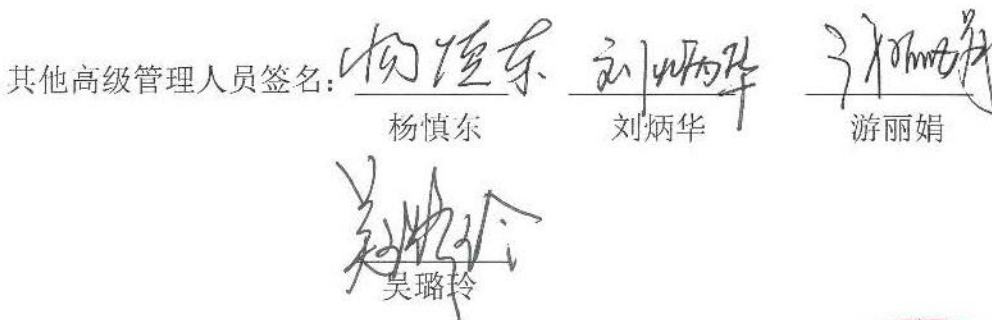 其他高级管理人员签名：杨慎东 刘炳华 游丽娟
杨慎东 刘炳华 游丽娟
吴璐玲
吴璐玲